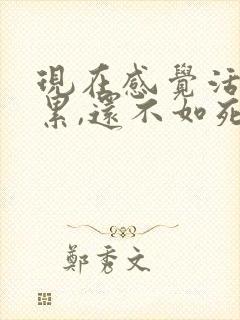 現在感覺活
累,還不如死
鄭秀文